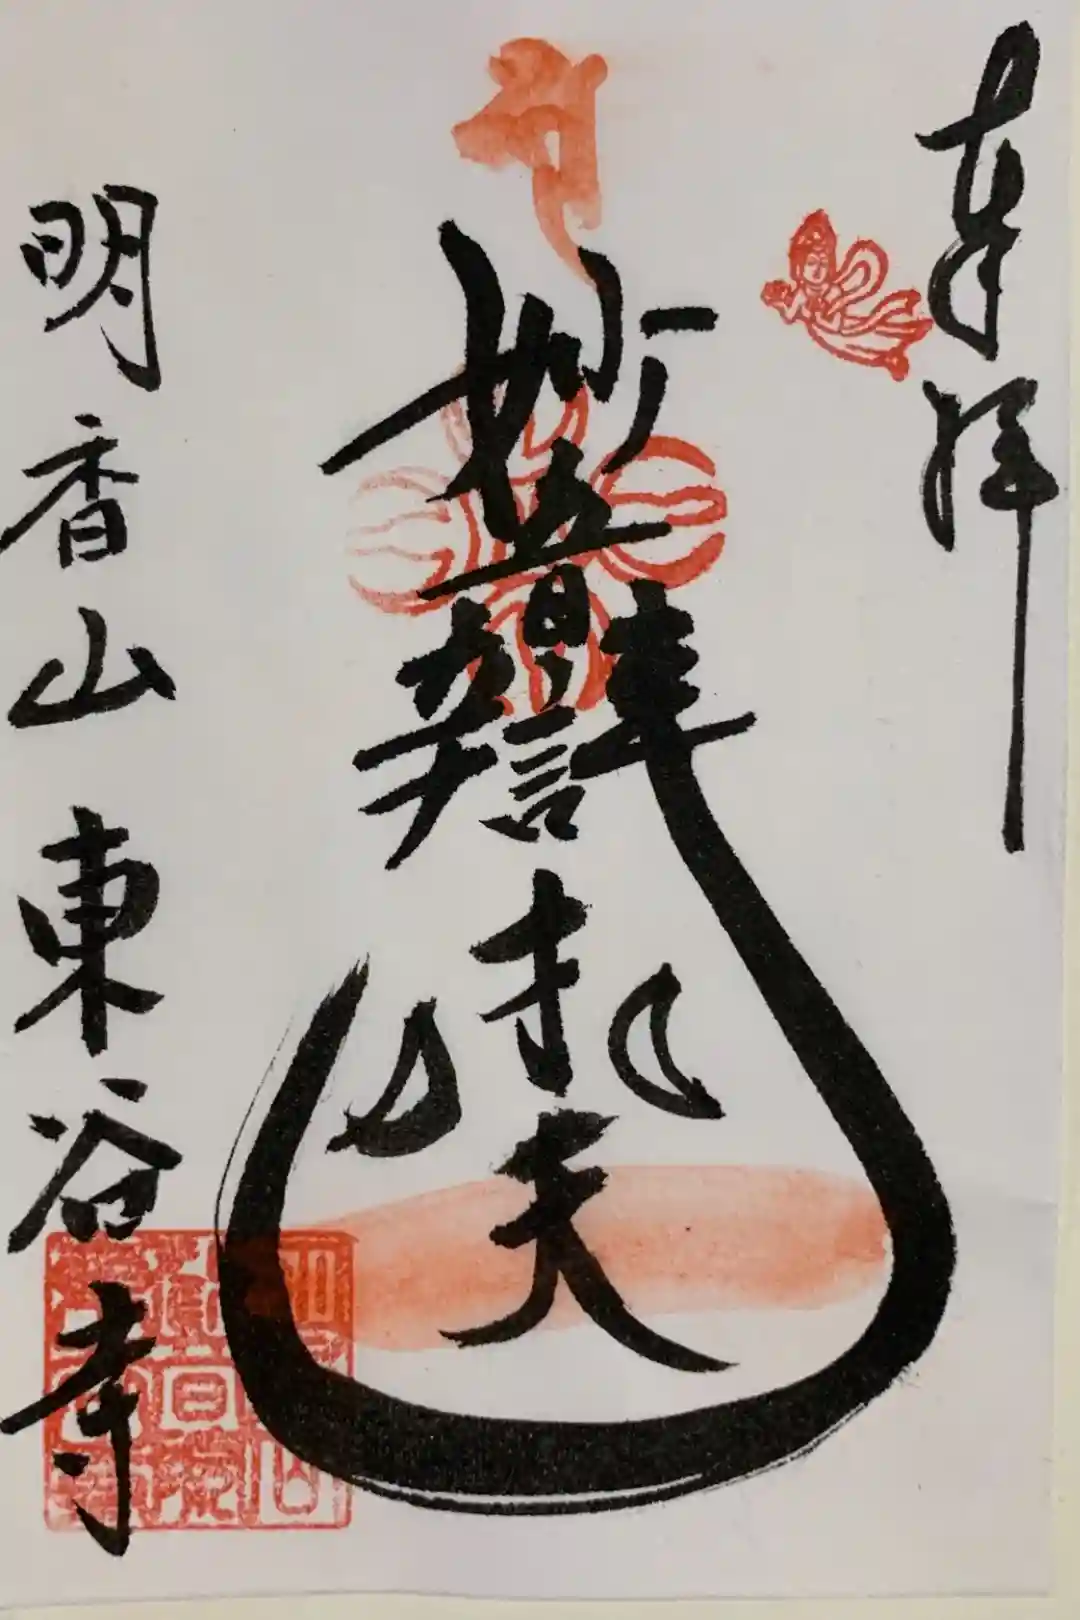 奉拝
妙音辯才天
明香山東谷寺